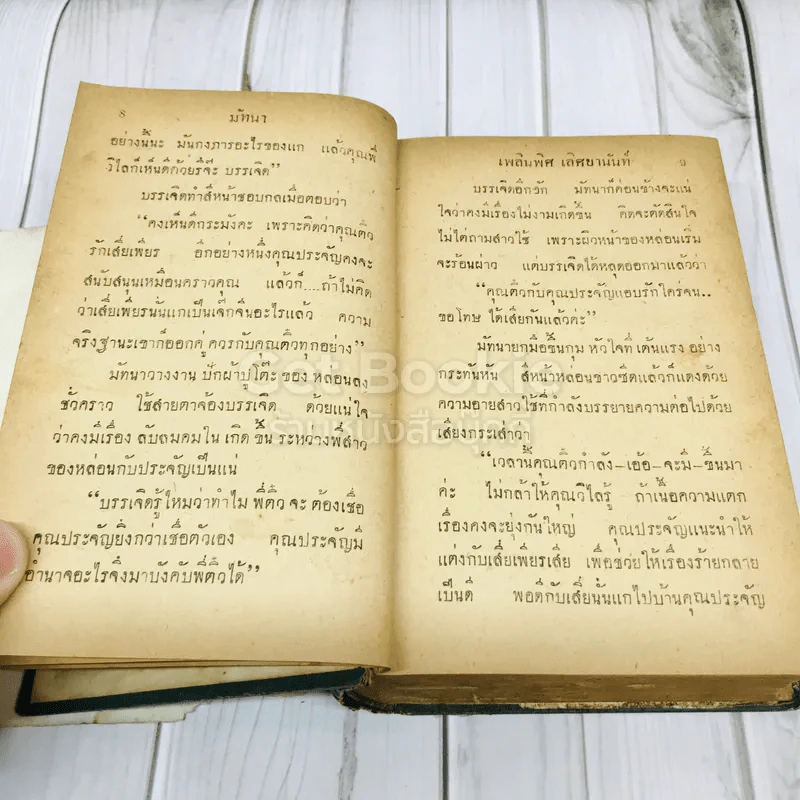 8 มัทนา
อย่างนี้นะ มันกงการอะไรของแก แล้วคุณพี่
วิไลก็เห็นดีด้วยรึจ๊ะ บรรเจิด”
บรรเจิดทำสีหน้าชอบกลเมื่อตอบว่า
“คงเห็นดีกระมังคะ เพราะคิดว่าคุณติ๋ว
รักเสี่ยเพียร อีกอย่างหนึ่งคุณประจัญคงจะ
สนับสนุนเหมือนคราวคุณ แล้วก็....ถ้าไม่คิด
ว่าเสี่ยเพียรนั่นแกเป็นเจ๊กจีนอะไรแล้ว ความ
จริงฐานะเขาก็ออกคู่ ควรกับคุณติ๋วทุกอย่าง”
มัทนาวางงาน ปักผ้าปูโต๊ะ ของ หล่อนลง
ชั่วคราว ใช้สายตาจ้องบรรเจิด ด้วยแน่ใจ
ว่าคงมีเรื่อง ลับลมคมใน เกิด ขึ้น ระหว่างพี่สาว
ของหล่อนกับประจัญเป็นแน่
“บรรเจิดรู้ไหมว่าทำไม พี่ติ๋ว จะ ต้องเชื่อ
คุณประจัญยิ่งกว่าเชื่อตัวเอง คุณประจัญมี
อำนาจอะไรจึงมาบังคับพี่ติ๋วได้”
เพลินพิศ เลิศยานันท์ ๑
บรรเจิดอึกอัก มัทนาก็ค่อนข้างจะแน่
ใจว่าคงมีเรื่องไม่งามเกิดขึ้น คิดจะตัดสินใจ
ไม่ไต่ถามสาวใช้ เพราะผิวหน้าของหล่อนเริ่ม
จะร้อนผ่าว แต่บรรเจิดได้หลุดออกมาแล้วว่า
“คุณติ๋วกับคุณประจัญแอบรักใคร่จน..
ขอโทษ ได้เสียกันแล้วค่ะ”
มัทนายกมือขึ้นกุม หัวใจที่ เต้นแรง อย่าง
กระทันหัน สีหน้าหล่อนขาวซีดแล้วก็แดงด้วย
ความอายสาวใช้ที่กำลังบรรยายความต่อไปด้วย
เสียงกระเส่าว่า
“เวลานี้คุณติ๋วกำลัง-เอ้อ-จะมี-ขึ้นมา
ค่ะ ไม่กล้าให้คุณวิไลรู้ ถ้าเนื้อความแตก
เรื่องคงจะยุ่งกันใหญ่ คุณประจัญแนะนำให้
แต่งกับเสี่ยเพียรเสีย เพื่อช่วยให้เรื่องร้ายกลาย
เป็นดี พอดีกับเสี่ยนั่นแกไปบ้านคุณประจัญ